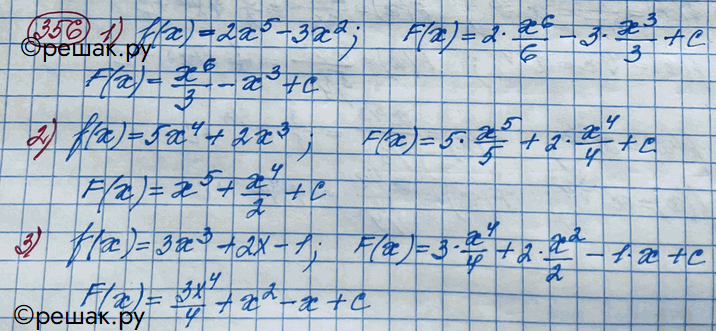 356 1) f(x) = 2x⁵ - 3x²; F(x) = 2 · x⁶/6 - 3 · x³/3 + C
©решак.ру
F(x) = x⁶/3 - x³ + C
2) f(x) = 5x⁴ + 2x³; F(x) = 5 · x⁵/5 + 2 · x⁴/4 + C
F(x) = x⁵ + x⁴/2 + C
3) f(x) = 3x³ + 2x - 1; F(x) = 3 · x⁴/4 + 2 · x²/2 - 1 · x + C
F(x) = 3x⁴/4 + x² - x + C
©решак.ру